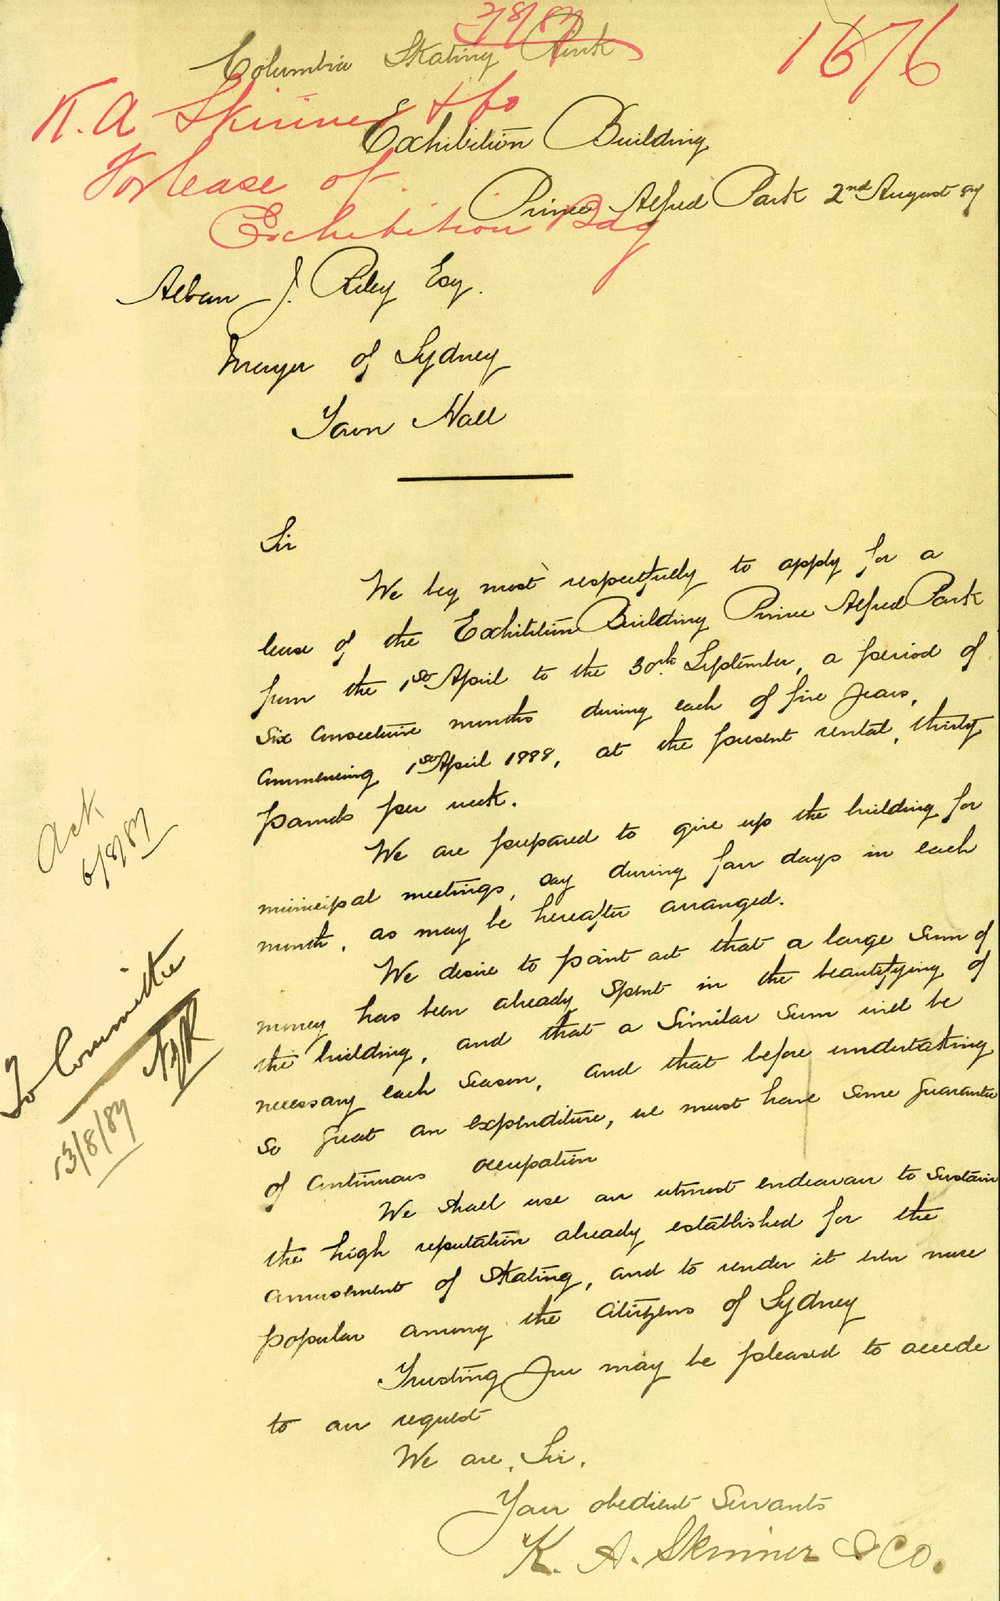 3/8/87
1676
Columbia Skating Rink
K. A Skinner & Co
Exhibition Building
For lease of
Prince Alfred Park 2nd August 87
Exhibition Bdg
Alban J. Riley Esq.
Mayor of Sydney
Town Hall
Sir
We beg most respectfully to apply for a
lease of the Exhibition Building Prince Alfred Park
from the 1st April to the 30th September, a period of
six consecutive months during each of five years,
commencing 1st April 1888, at the present rental, thirty
pounds per week.
We are prepared to give up the building for
municipal meetings, say during four days in each
month, as may be hereafter arranged.
We desire to point out that a large sum of
money has been already spent in the beautifying of
the building, and that a similar sum will be
necessary each season, and that before undertaking
so great an expenditure, we must have some guarantee
of continuous occupation
We shall use our utmost endeavour to sustain
the high reputation already established for the
amusement of skating, and to render it even more
popular among the citizens of Sydney
Trusting you may be pleased to accede
to our request
We are, Sir,
Your obedient Servants
K. A. Skinner & Co.
Ack
6/8/87
To Committee
AJR
13/8/87